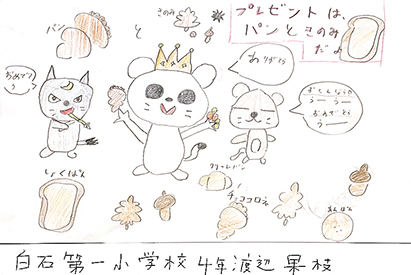 プレゼントは、
パンときのみ
だよ
パン
と
きのみ
おめでとう
ありがとう
おたんじょう
おめでとう
しょくぱん
クリームパン
チョココロネ
あんぱん
白石第一小学校 4年 渡辺 果枝